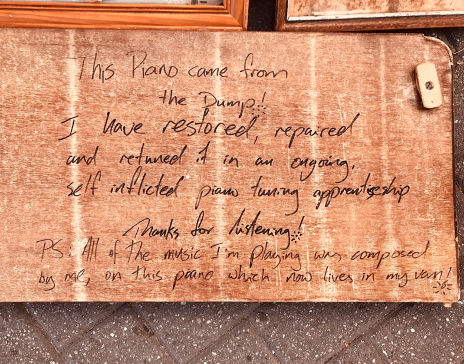 This Piano came from
the Dump!
I have restored, repaired
and retuned it in an ongoing,
self inflicted piano tuning apprenticeship
Thanks for listening!
PS: All of the music I'm playing was composed
by me, on this piano which now lives in my van!